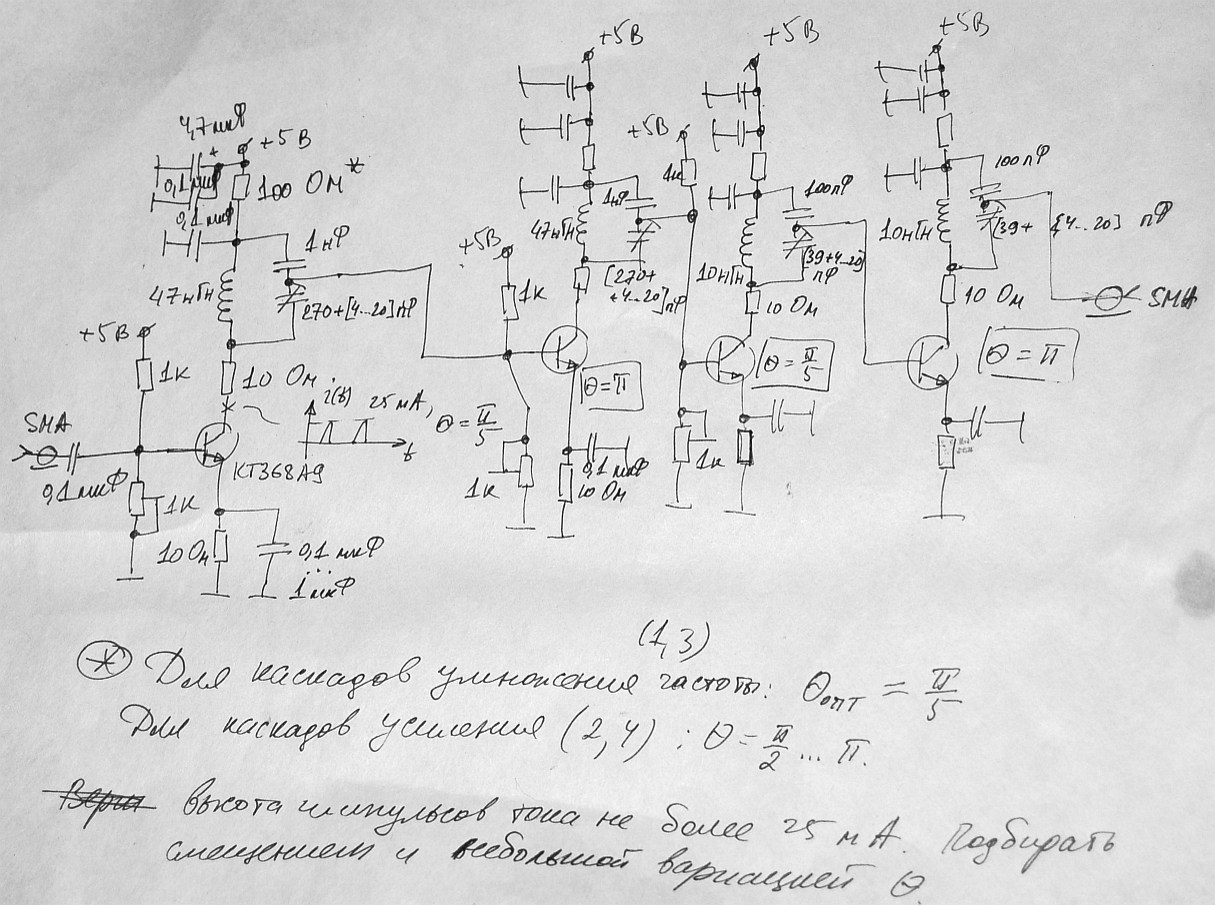 +5В
+5В
+5В
4,7 мкФ
+
+5В
0,1 мкФ
100 Ом*
0,1 мкФ
1нФ
47нГн
270+[4...20]пФ
+5В
1к
10 Ом
i(t)
25 мА,
θ = π/5
t
SMA
0,1 мкФ
КТ368А9
1к
10 Ом
0,1 мкФ
...
1 мкФ
+5В
1к
47нГн
1нФ
[270+
+4...20]пФ
θ = π
1к
0,1 мкФ
10 Ом
+5В
1к
100пФ
10нГн
[39+4...20]
пФ
10 Ом
θ = π/5
1к
100пФ
10нГн
[39+ [4...20] пФ
10 Ом
SMA
θ = π
(1,3)
* Для каскадов умножения частоты: θопт = π/5
Для каскадов усиления (2,4) ; θ = π/2 ... π.
высота импульсов тока не более 25 мА. Подбирать
смещением и небольшой вариацией θ.